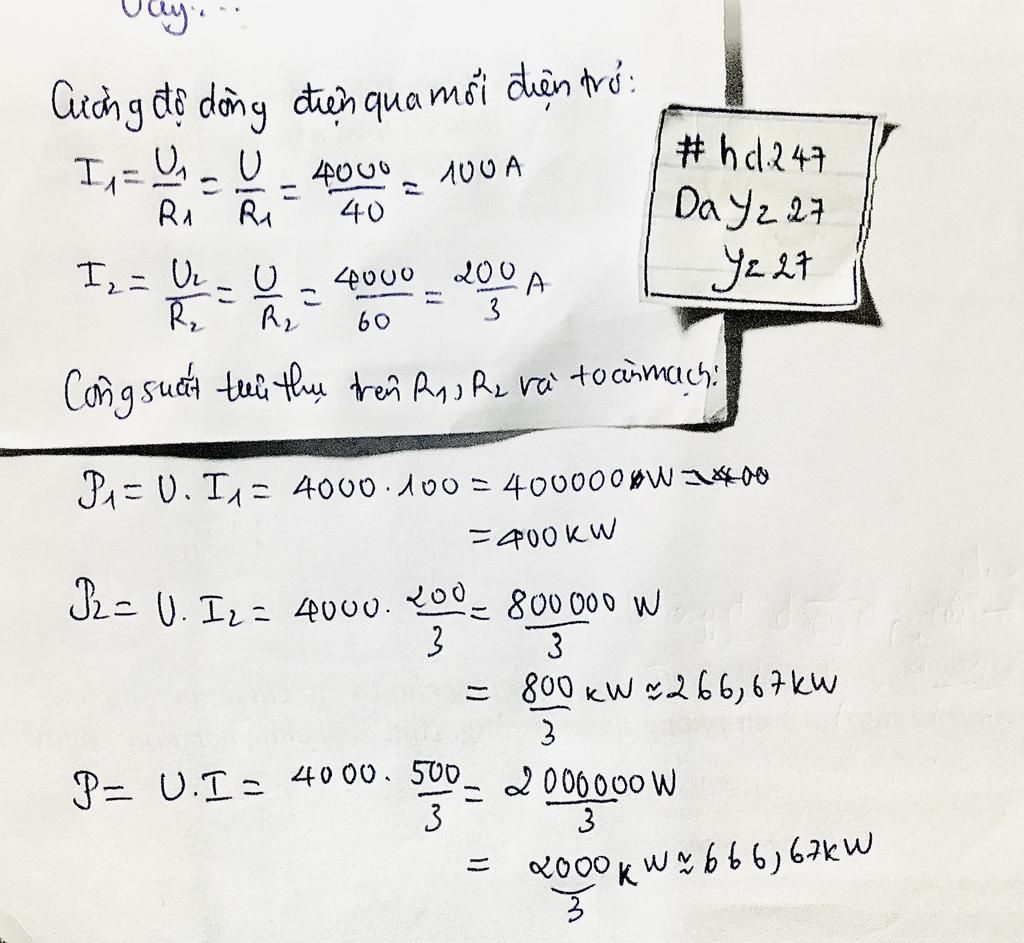 Vậy:...
Cường độ dòng điện qua mỗi điện trở:
I₁ = U₁/R₁ = U/R₁ = 4000/40 = 100 A
I₂ = U₂/R₂ = U/R₂ = 4000/60 = 200/3 A
#hd247
Dayz27
yz27
Công suất tiêu thụ trên R₁, R₂ và toàn mạch:
P₁ = U.I₁ = 4000.100 = 400000W = 400
= 400 KW
P₂ = U.I₂ = 4000.200/3 = 800000/3 W
= 800/3 KW ≈ 266,67 KW
P = U.I = 4000.500/3 = 2000000/3 W
= 2000/3 KW ≈ 666,67 KW